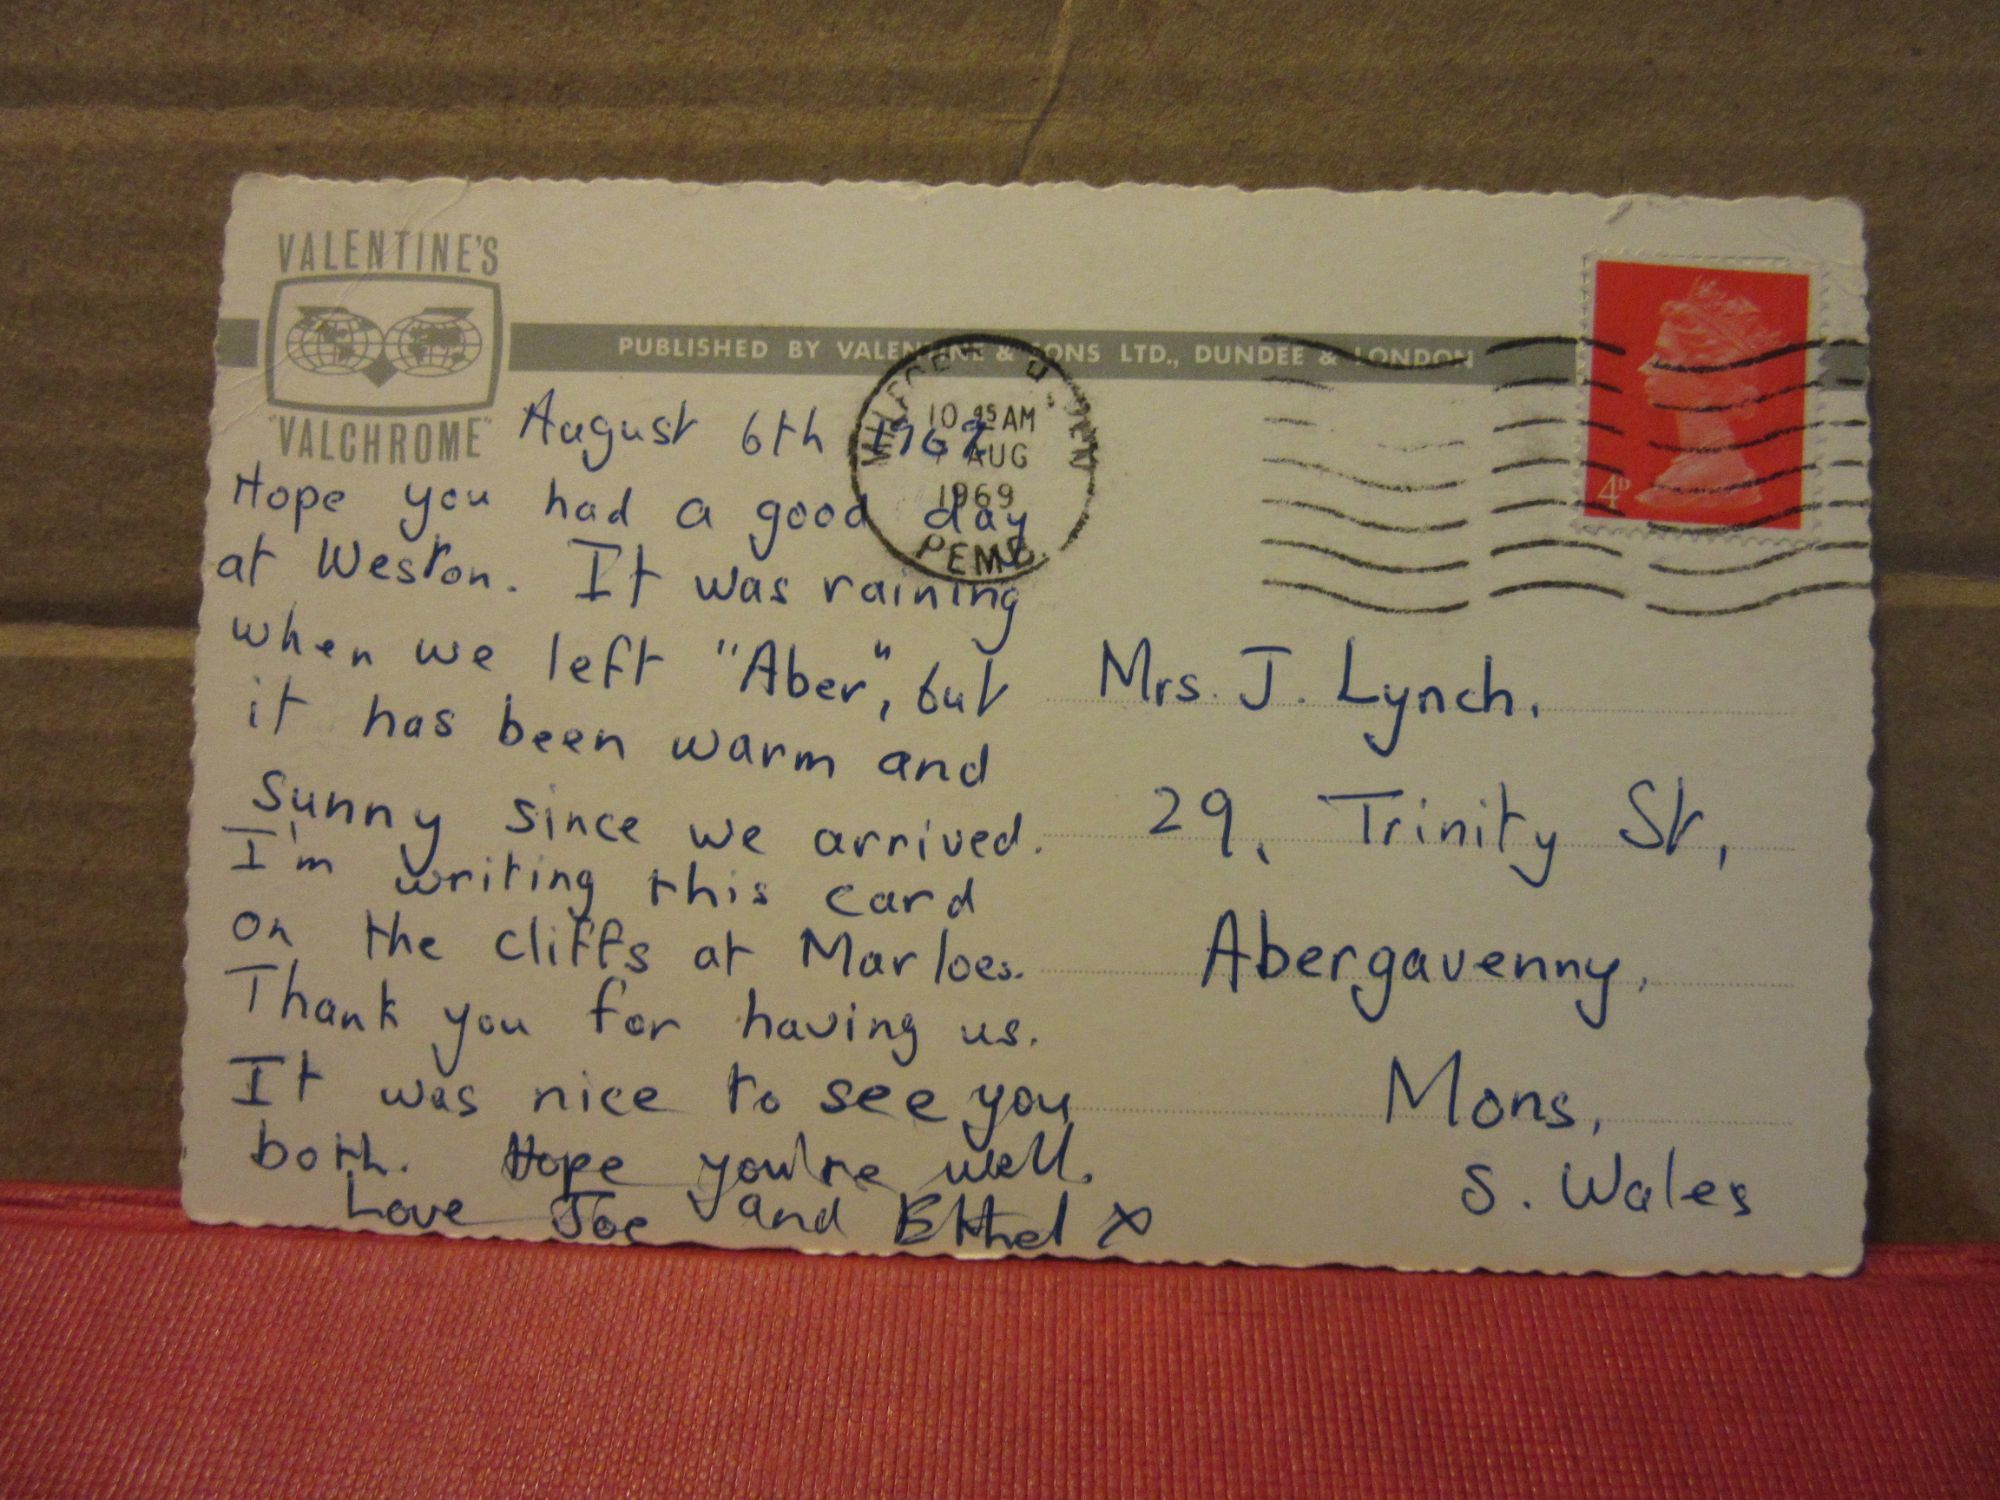 VALENTINE'S
"VALCHROME"
PUBLISHED BY VALENTINE & SONS LTD., DUNDEE & LONDON
10 45 AM
7 AUG
1969
PEMB
4D
August 6th
Hope you had a good day
at Weston. It was raining
when we left "Aber", but
it has been warm and
sunny since we arrived.
I'm writing this card
on the cliffs at Marloes.
Thank you for having us.
It was nice to see you
both. Hope you're well.
Love Joe and Ethel x
Mrs. J. Lynch.
29, Trinity St,
Abergavenny,
Mons,
S. Wales